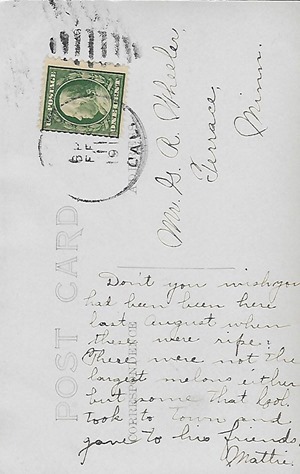 POST CARD
CORRESPONDENCE
U.S. POSTAGE
ONE CENT
6 P
FE
191
CAL
Mr. G. R. Wheeler,
Terrace,
Minn.
Don't you wish you
had been been here
last August when
these were ripe?
There were not the
largest melons either
but some that Bob
took to town and
gave to his friends.
Mattie